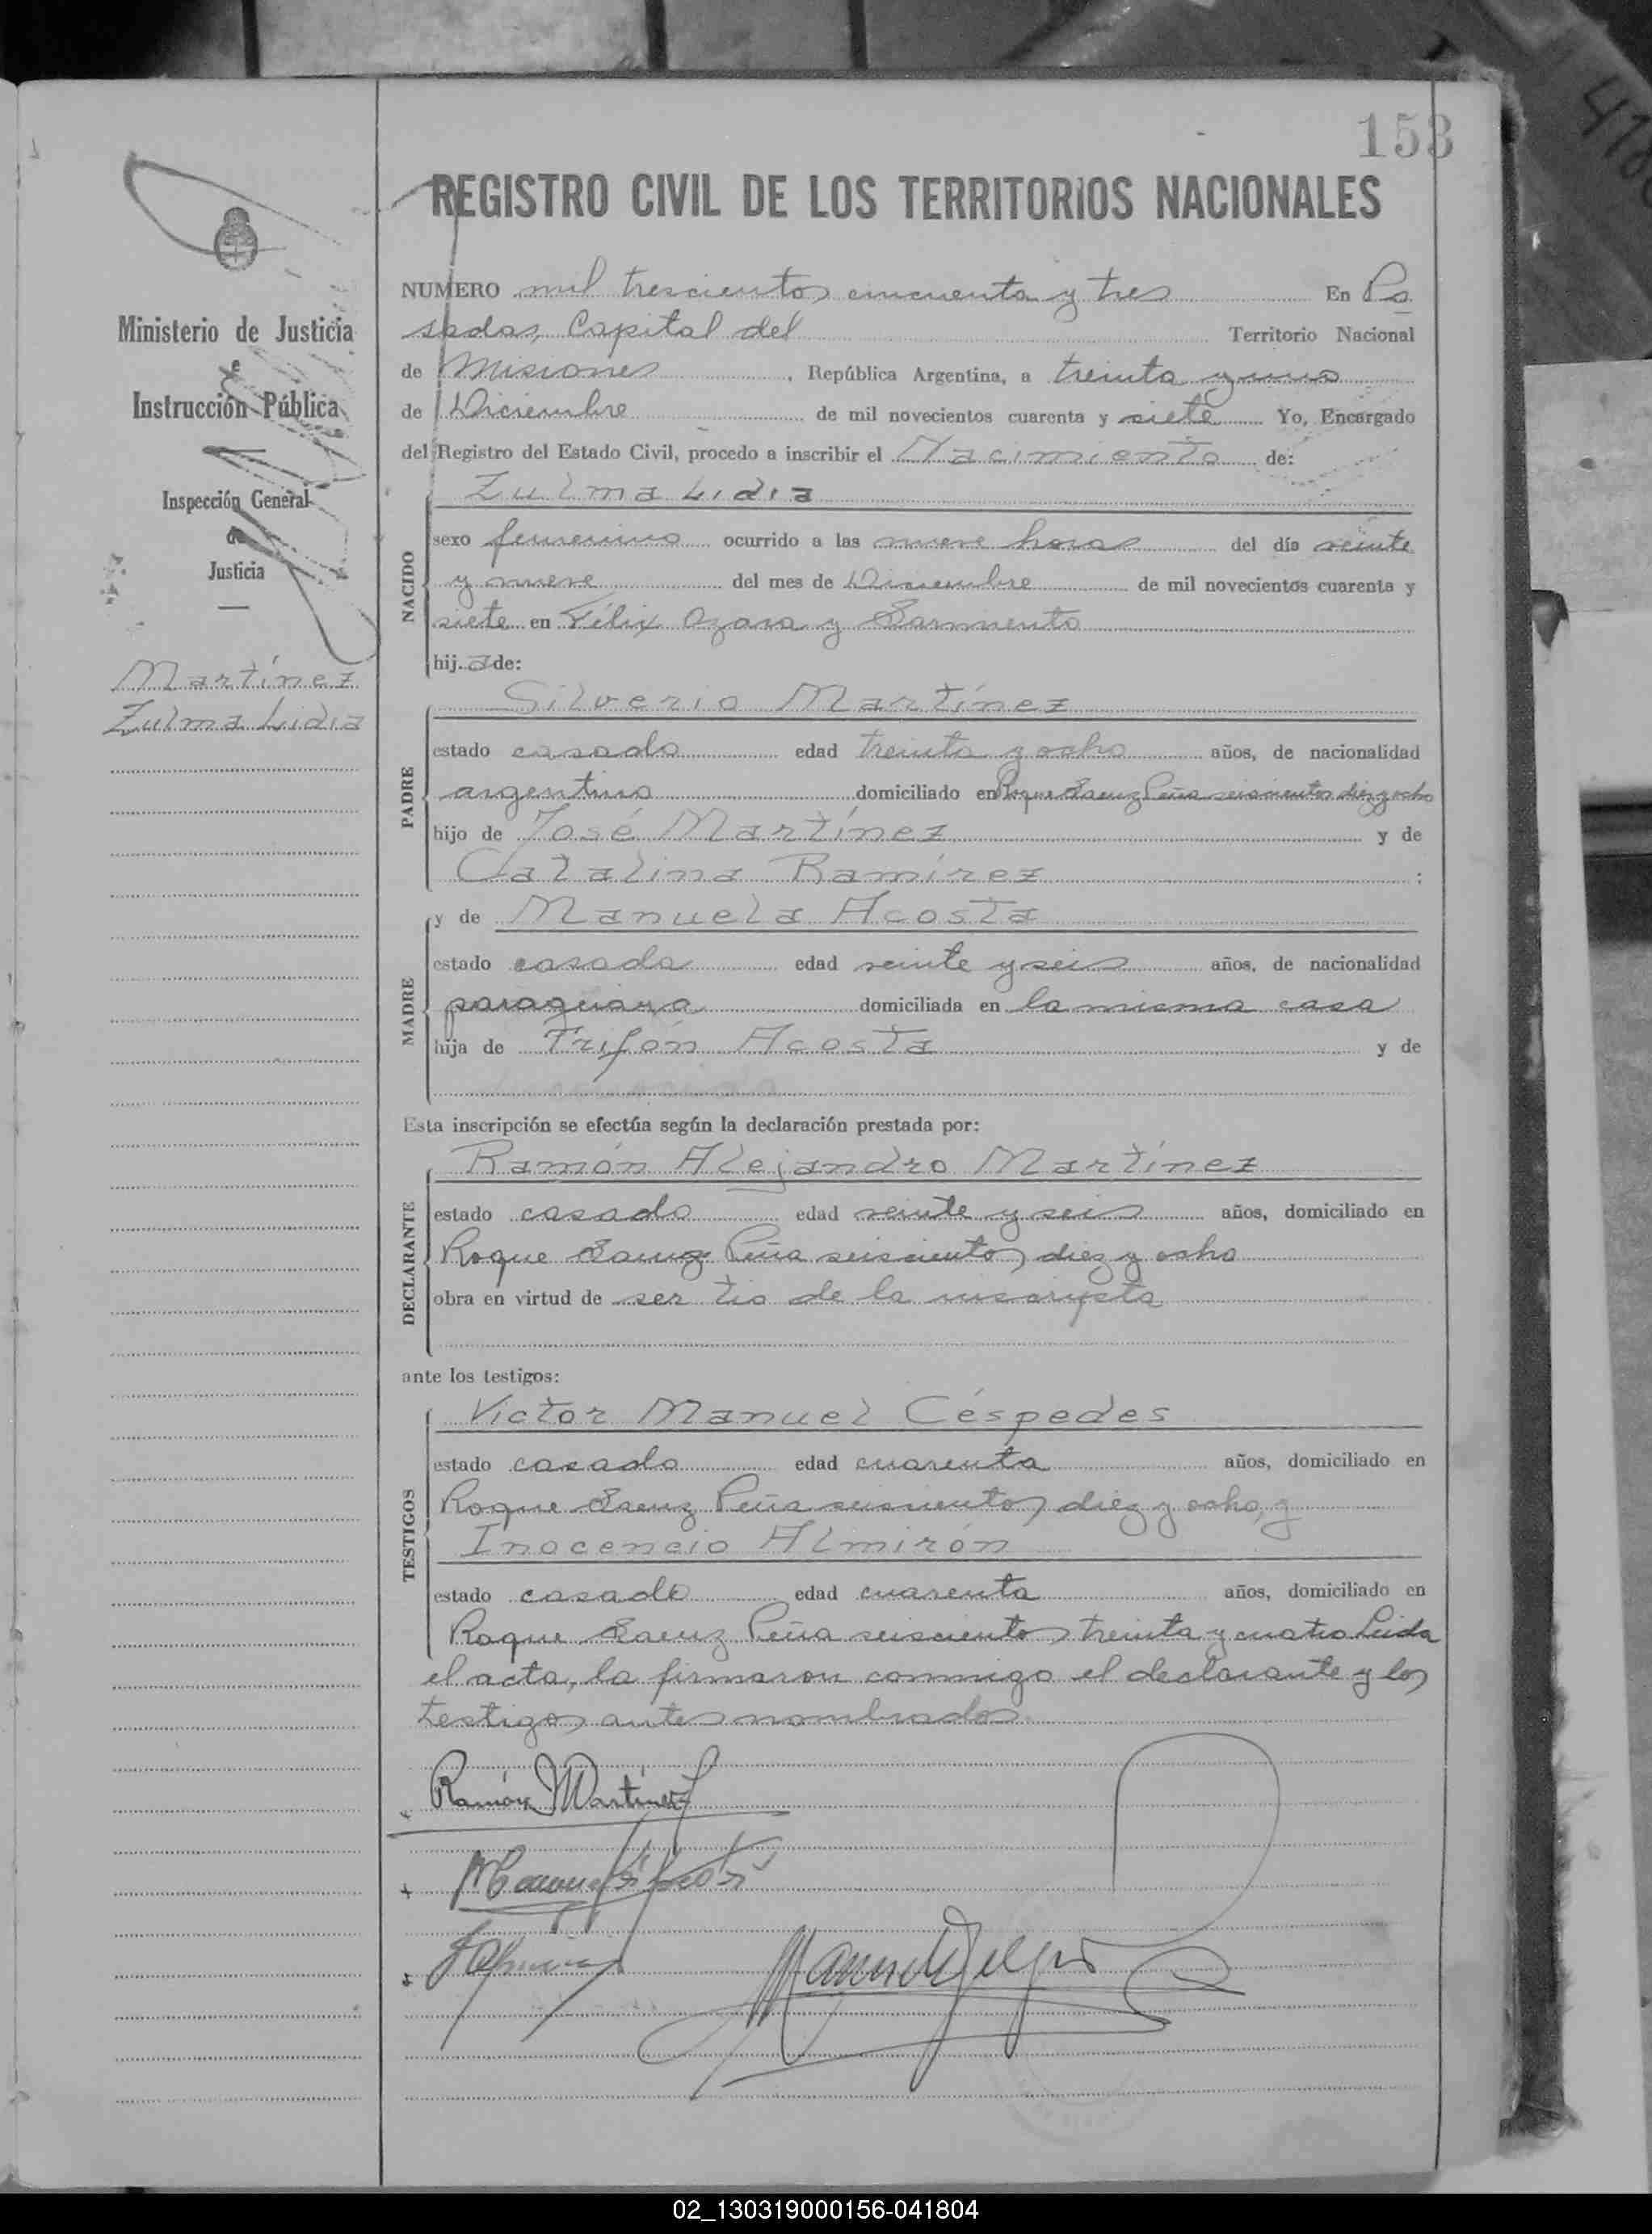 153
REGISTRO CIVIL DE LOS TERRITORIOS NACIONALES
Ministerio de Justicia
e
Instrucción Pública
Inspección General
de
Justicia
Martínez
Zulma Lidia
NUMERO mil trescientos cincuenta y tres En Po
sadas, Capital del Territorio Nacional
de Misiones, República Argentina, a treinta y uno
de Diciembre de mil novecientos cuarenta y siete Yo, Encargado
del Registro del Estado Civil, procedo a inscribir el Nacimiento de:
NACIDO
Zulma Lidia
sexo femenino ocurrido a las nueve horas del día veinte
y nueve del mes de Diciembre de mil novecientos cuarenta y
siete en Félix Azara y Sarmiento
hij a de:
PADRE
Silverio Martínez
estado casado edad treinta y ocho años, de nacionalidad
argentino domiciliado en Roque Saenz Peña seiscientos diez y ocho
hijo de José Martínez y de
Catalina Ramírez :
MADRE
y de Manuela Acosta
estado casada edad veinte y seis años, de nacionalidad
paraguaya domiciliada en la misma casa
hija de Trifón Acosta y de
Esta inscripción se efectúa según la declaración prestada por:
DECLARANTE
Ramón Alejandro Martínez
estado casado edad veinte y seis años, domiciliado en
Roque Saenz Peña seiscientos diez y ocho
obra en virtud de ser tio de la inscripta
ante los testigos:
TESTIGOS
Victor Manuel Céspedes
estado casado edad cuarenta años, domiciliado en
Roque Saenz Peña seiscientos diez y ocho, y
Inocencio Almirón
estado casado edad cuarenta años, domiciliado en
Roque Saenz Peña seiscientos treinta y cuatro Leida
el acta, la firmaron conmigo el declarante y los
testigos antes nombrados
Ramón Martínez
02_130319000156-041804